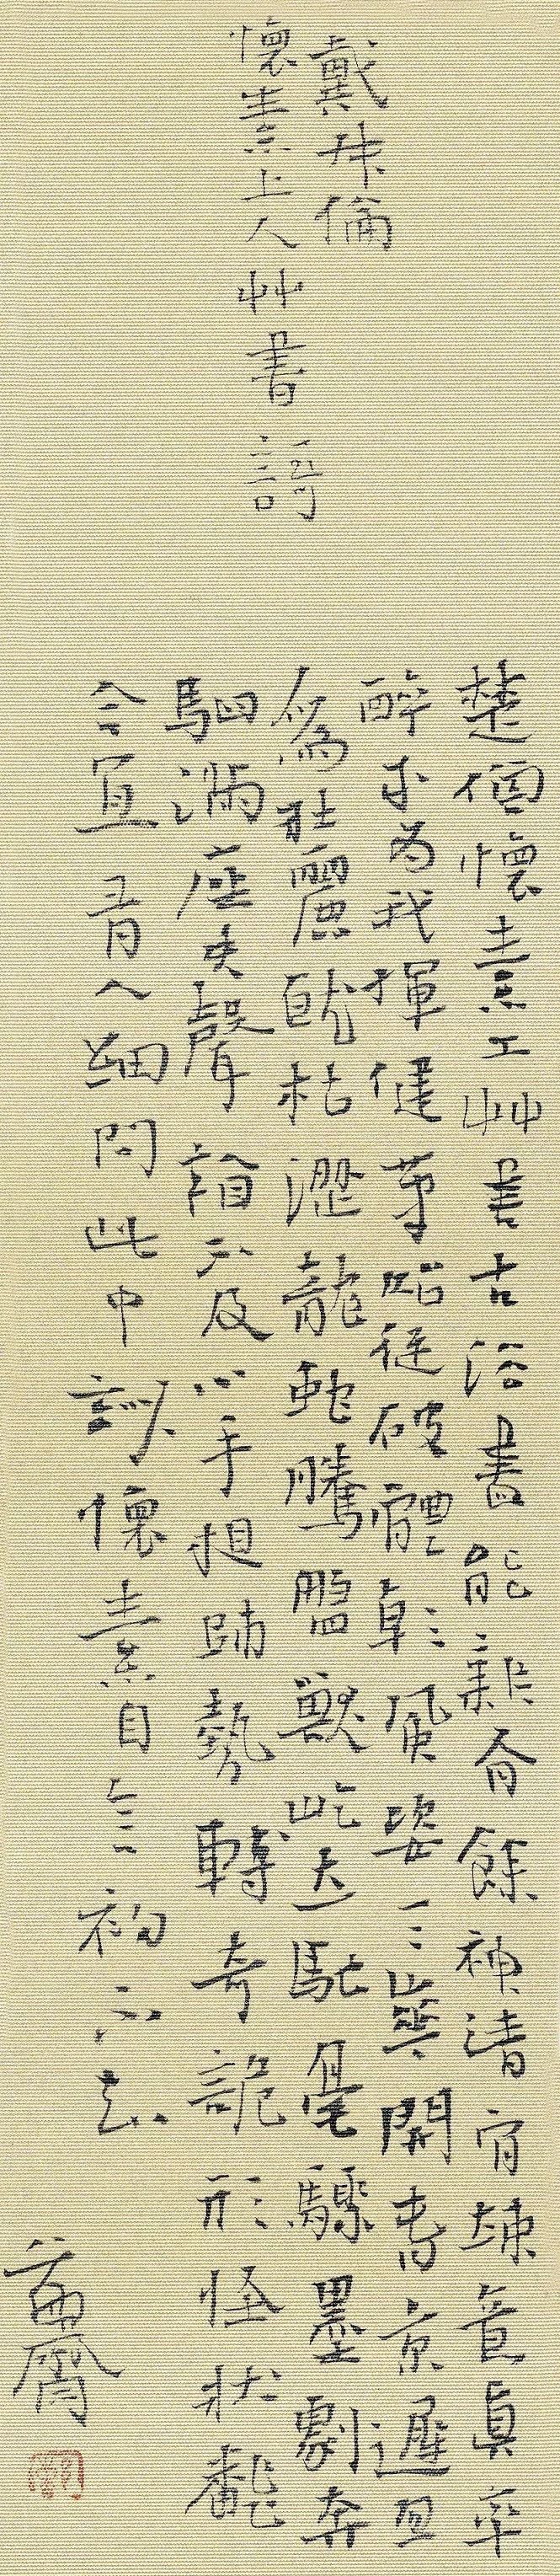 戴叔倫
懷素上人艸書謌
楚僧懷素工艸書古法盡能新有餘神清骨竦意真率
醉来為我揮健筆始從破體變風姿一一華開春景遲忽
為壯麗就枯澀龍蛇騰盤獸屹立馳毫驟墨劇奔
駟滿座失聲看不及心手相師勢轉奇詭形怪狀翻
合宜有人細問此中妙懷素自言初不知